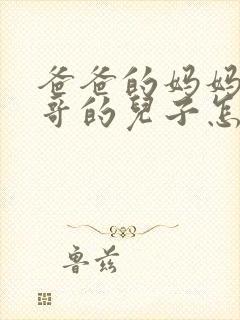 爸爸的妈妈
哥的兒子怎
鲁兹